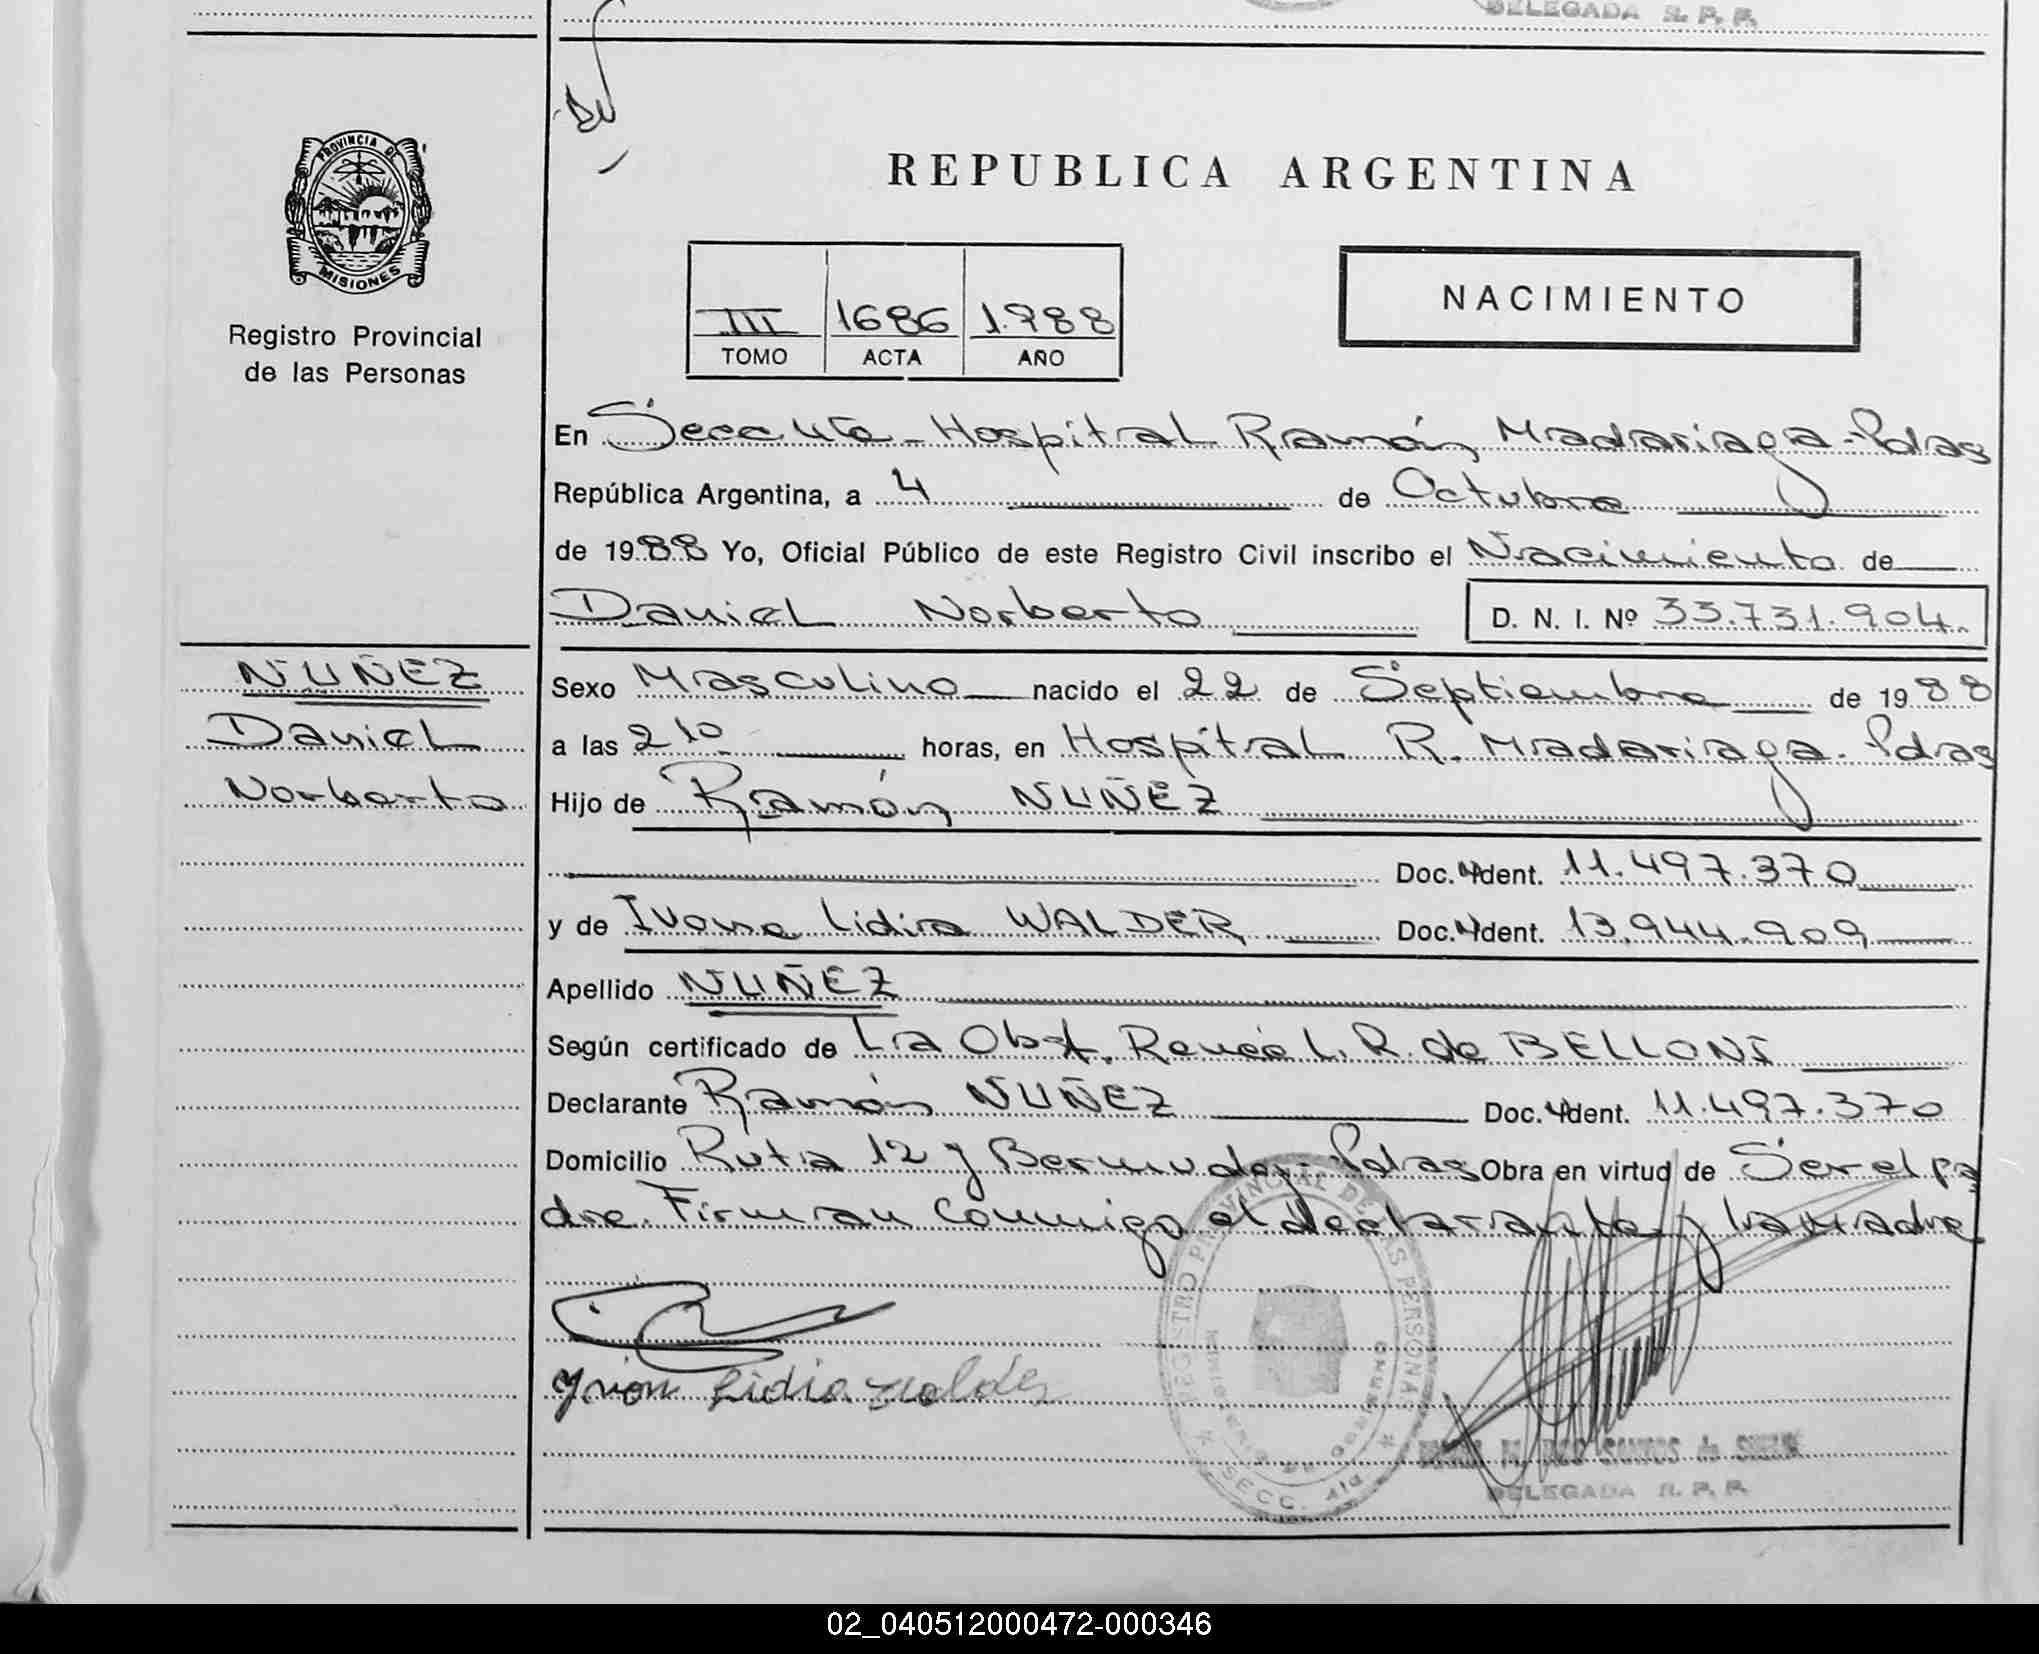 DELEGADA R. P. P.
PROVINCIA DE
MISIONES
Registro Provincial
de las Personas
REPUBLICA ARGENTINA
III 1686 1.988
TOMO ACTA AÑO
NACIMIENTO
En Secc. Hospital Ramón Madariaga - Pdas
República Argentina, a 4 de Octubre
de 1988 Yo, Oficial Público de este Registro Civil inscribo el Nacimiento de
Daniel Norberto D. N. I. Nº 33.731.904.
NUÑEZ
Daniel
Norberto
Sexo Masculino nacido el 22 de Septiembre de 1988
a las 2 10 horas, en Hospital R. Madariaga - Pdas
Hijo de Ramón NUÑEZ
Doc. Ident. 11.497.370
y de Ivone Lidia WALDER Doc. Ident. 13.944.909
Apellido NUÑEZ
Según certificado de La Obst. Reneé L. R. de BELLONI
Declarante Ramón NUÑEZ Doc. Ident. 11.497.370
Domicilio Ruta 12 y Bermudez - Pdas Obra en virtud de Ser el pa
dre. Firman conmigo el declarante y la madre
REGISTRO PROVINCIAL DE LAS PERSONAS
SECC.
Lidia
SANTOS de
DELEGADA R. P. P.
02_040512000472-000346